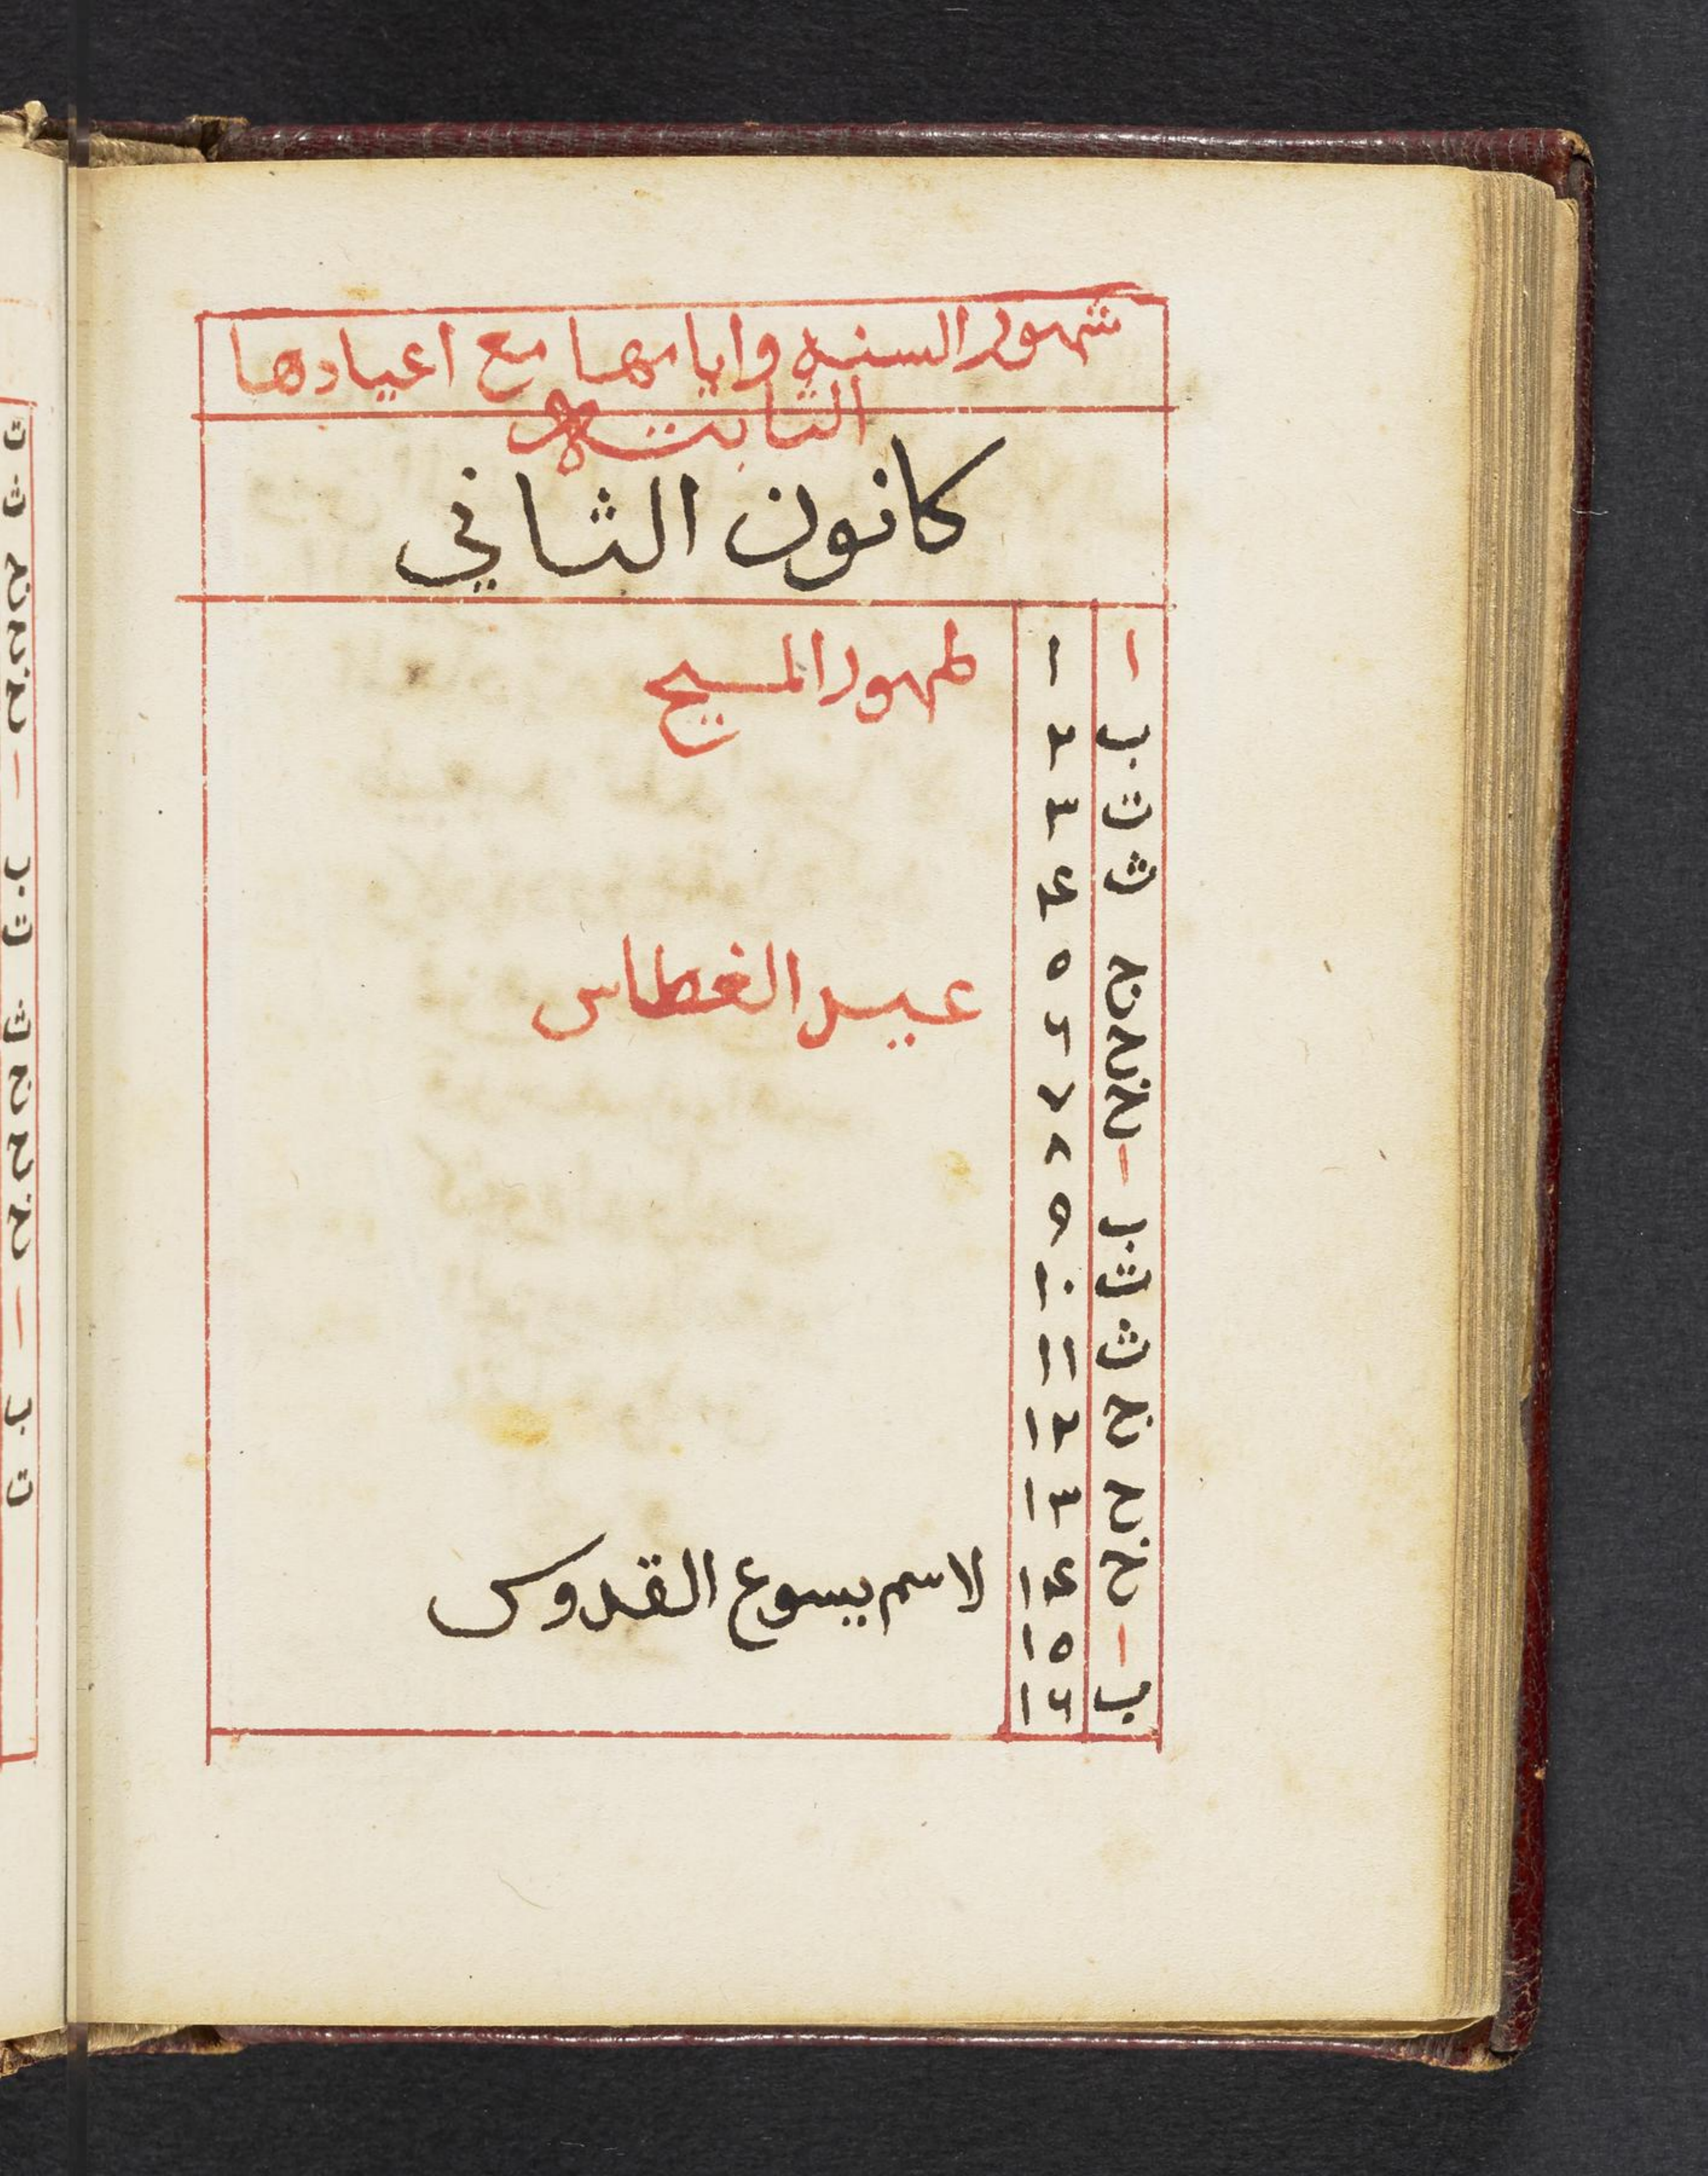 شهور السنة وايامها مع اعيادها
الثابتة
كانون الثاني
ا ١ طهور المسيح
ب ٢
ت ٣
ث ٤
ج ٥
ح ٦ عيد الغطاس
خ ٧
ا ٨
ب ٩
ت ١٠
ث ١١
ج ١٢
ح ١٣
خ ١٤ لاسم يسوع القدوس
ا ١٥
ب ١٦
ت
ث
ج
ح
خ
ا
ب
ت
ث
ج
ح
خ
ا
ب
ت